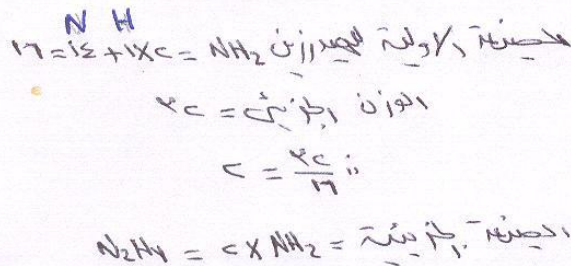 N H
الصيغة الاولية للهيدرزين NH₂ = ٢×١ + ١٤ = ١٦
الوزن الجزيئي = ٣٢
ن = ٣٢/١٦ = ٢
الصيغة الجزيئية = NH₂ × ٢ = N₂H₄